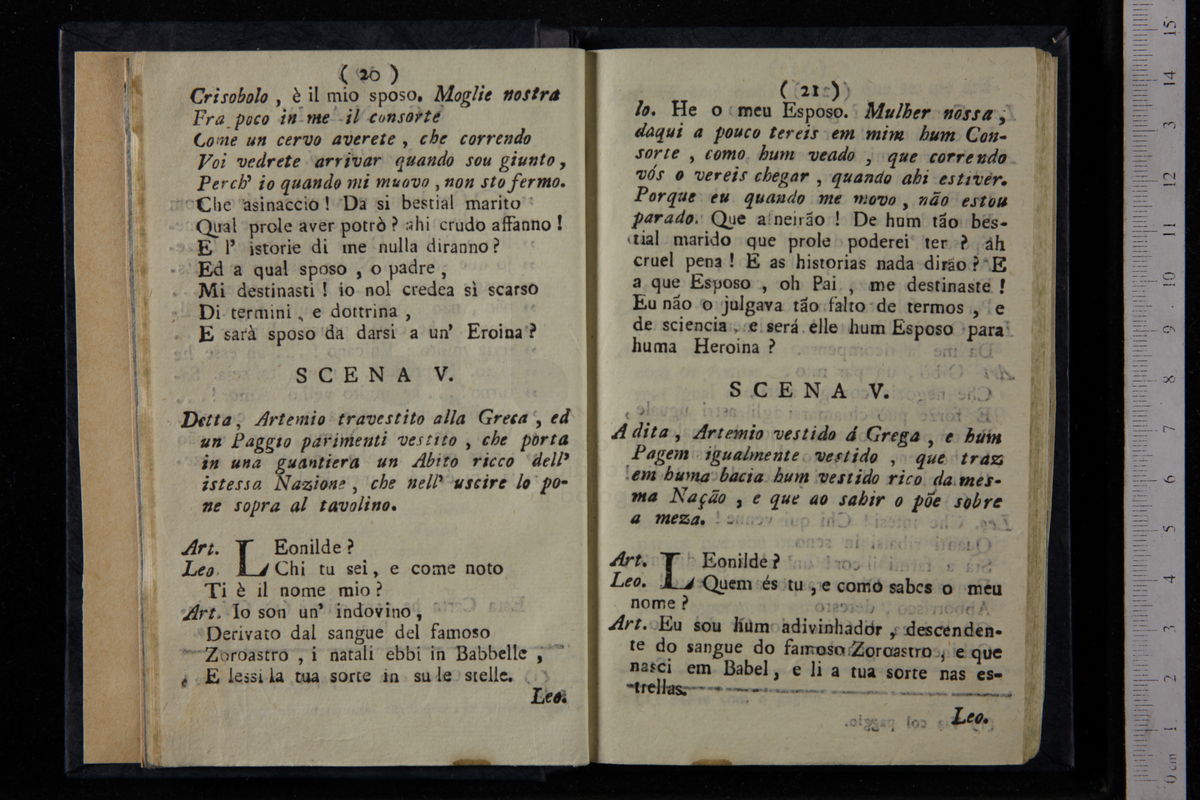 ( 20 )
Crisobolo , è il mio sposo. Moglie nostra
Fra poco in me il consorte
Come un cervo averete , che correndo
Voi vedrete arrivar quando sou giunto ,
Perch' io quando mi muovo , non sto fermo.
Che asinaccio ! Da si bestial marito
Qual prole aver potrò ? ahi crudo affanno !
E l' istorie di me nulla diranno ?
Ed a qual sposo , o padre ,
Mi destinasti ! io nol credea sì scarso
Di termini , e dottrina ,
E sarà sposo da darsi a un' Eroina ?
SCENA V.
Detta, Artemio travestito alla Greca , ed
un Paggio parimenti vestito , che porta
in una guantiera un Abito ricco dell'
istessa Nazione , che nell' uscire lo po-
ne sopra al tavolino.
Art. LEonilde ?
Leo. Chi tu sei , e come noto
Ti è il nome mio ?
Art. Io son un' indovino ,
Derivato dal sangue del famoso
Zoroastro , i natali ebbi in Babbelle ,
E lessi la tua sorte in su le stelle.
Leo.
( 21 )
lo. He o meu Esposo. Mulher nossa ,
daqui a pouco tereis em mim hum Con-
sorte , como hum veado , que correndo
vós o vereis chegar , quando ahi estiver.
Porque eu quando me movo , não estou
parado. Que asneirão ! De hum tão bes-
tial marido que prole poderei ter ? ah
cruel pena ! E as historias nada dirão ? E
a que Esposo , oh Pai , me destinaste !
Eu não o julgava tão falto de termos , e
de sciencia , e será elle hum Esposo para
huma Heroina ?
SCENA V.
A dita , Artemio vestido á Grega , e hum
Pagem igualmente vestido , que traz
em huma bacia hum vestido rico da mes-
ma Nação , e que ao sahir o põe sobre
a meza.
Art. LEonilde ?
Leo. Quem és tu , e como sabes o meu
nome ?
Art. Eu sou hum adivinhador , descenden-
te do sangue do famoso Zoroastro , e que
nasci em Babel , e li a tua sorte nas es-
trellas.
Leo.
0 cm 1 2 3 4 5 6 7 8 9 10 11 12 13 14 15